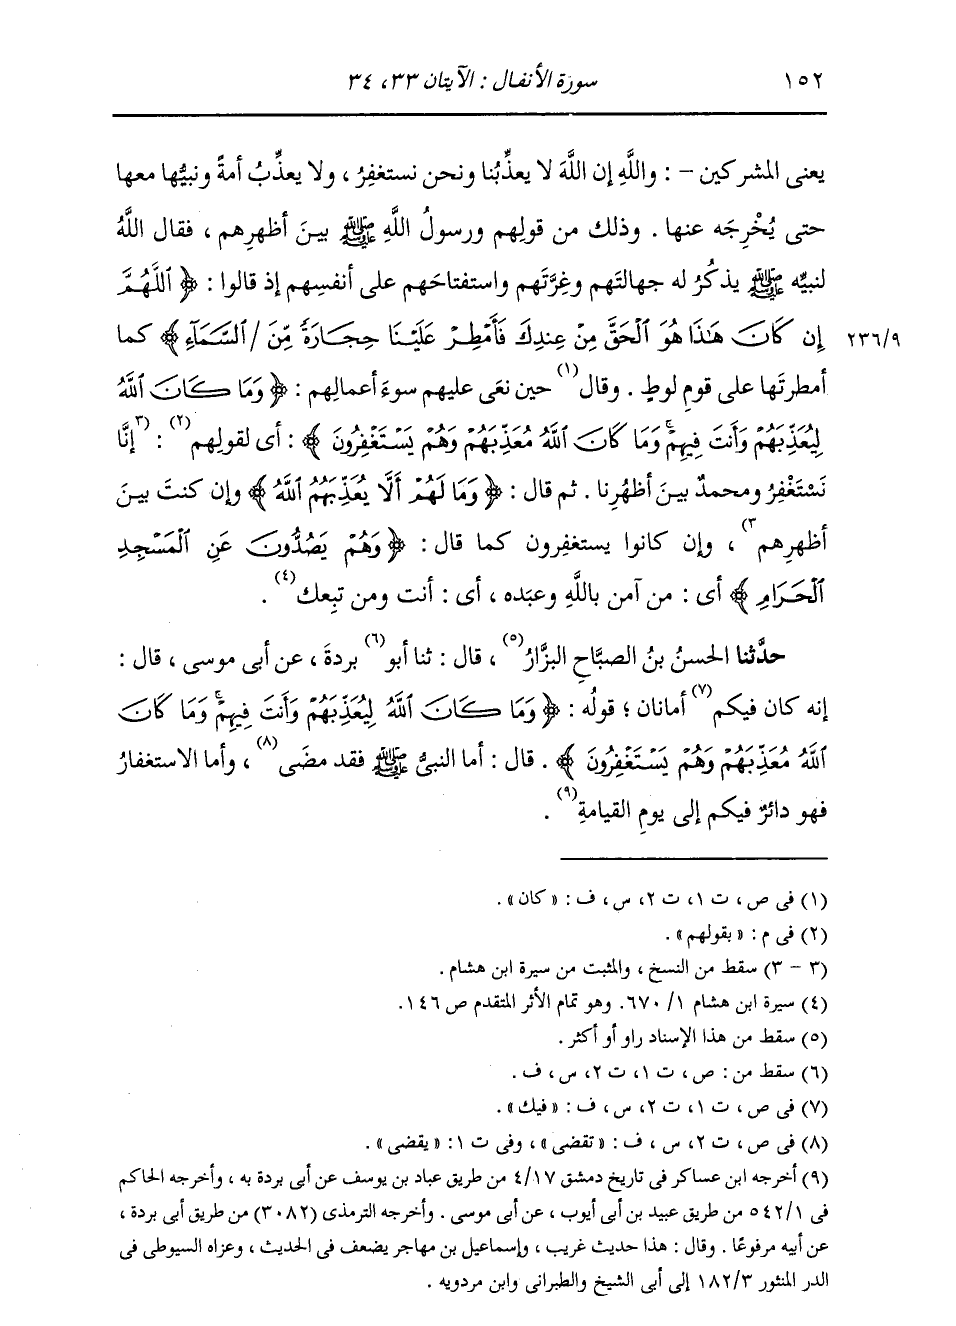 ١٥٢ سورة الأنفال : الآيتان ٣٣، ٣٤
يعنى المشركين - : واللَّهِ إن اللَّهَ لا يعذِّبُنا ونحن نستغفِرُ ، ولا يعذِّبُ أمةً ونبيُّها معها
حتى يُخْرِجَه عنها . وذلك من قولِهم ورسولُ اللَّهِ ﷺ بينَ أظهرِهم ، فقال اللَّهُ
لنبيِّه ﷺ يذكُرُ له جهالتَهم وغِرَّتَهم واستفتاحَهم على أنفسِهم إذ قالوا : ﴿ ٱللَّهُمَّ
٢٣٦/٩ إِن كَانَ هَٰذَا هُوَ ٱلْحَقَّ مِنْ عِندِكَ فَأَمْطِرْ عَلَيْنَا حِجَارَةً مِّنَ / ٱلسَّمَآءِ ﴾ كما
أمطرتَها على قومِ لوطٍ . وقال (١) حين نعَى عليهم سوءَ أعمالِهم : ﴿ وَمَا كَانَ ٱللَّهُ
لِيُعَذِّبَهُمْ وَأَنتَ فِيهِمْۚ وَمَا كَانَ ٱللَّهُ مُعَذِّبَهُمْ وَهُمْ يَسْتَغْفِرُونَ ﴾ : أى لقولِهم (٢) : (٣) إنَّا
نَسْتَغْفِرُ ومحمدٌ بينَ أظهُرِنا . ثم قال : ﴿ وَمَا لَهُمْ أَلَّا يُعَذِّبَهُمُ ٱللَّهُ ﴾ وإن كنتَ بينَ
أظهرِهم ٣) ، وإن كانوا يستغفِرون كما قال : ﴿ وَهُمْ يَصُدُّونَ عَنِ ٱلْمَسْجِدِ
ٱلْحَرَامِ ﴾ أى : من آمن باللَّهِ وعبَده ، أى : أنت ومن تبِعك (٤) .
حدَّثنا الحسنُ بنُ الصبَّاحِ البزَّارُ (٥) ، قال : ثنا أبو (٦) بردةَ ، عن أبى موسى ، قال :
إنه كان فيكم (٧) أمانان ؛ قولُه : ﴿ وَمَا كَانَ ٱللَّهُ لِيُعَذِّبَهُمْ وَأَنتَ فِيهِمْۚ وَمَا كَانَ
ٱللَّهُ مُعَذِّبَهُمْ وَهُمْ يَسْتَغْفِرُونَ ﴾ . قال : أما النبىُّ ﷺ فقد مضَى (٨) ، وأما الاستغفارُ
فهو دائرٌ فيكم إلى يومِ القيامةِ (٩) .
(١) فى ص ، ت ١، ت ٢، س ، ف : « كان » .
(٢) فى م : « بقولهم » .
(٣ - ٣) سقط من النسخ ، والمثبت من سيرة ابن هشام .
(٤) سيرة ابن هشام ١/ ٦٧٠. وهو تمام الأثر المتقدم ص ١٤٦.
(٥) سقط من هذا الإسناد راو أو أكثر .
(٦) سقط من : ص ، ت ١، ت ٢، س ، ف .
(٧) فى ص ، ت ١، ت ٢، س ، ف : « فيك » .
(٨) فى ص ، ت ٢، س ، ف : « تقضى » ، وفى ت ١: « يقضى » .
(٩) أخرجه ابن عساكر فى تاريخ دمشق ٤/١٧ من طريق عباد بن يوسف عن أبى بردة به ، وأخرجه الحاكم
فى ٥٤٢/١ من طريق عبيد بن أبى أيوب ، عن أبى موسى . وأخرجه الترمذى (٣٠٨٢) من طريق أبى بردة ،
عن أبيه مرفوعًا . وقال : هذا حديث غريب ، وإسماعيل بن مهاجر يضعف فى الحديث ، وعزاه السيوطى فى
الدر المنثور ١٨٢/٣ إلى أبى الشيخ والطبرانى وابن مردويه .